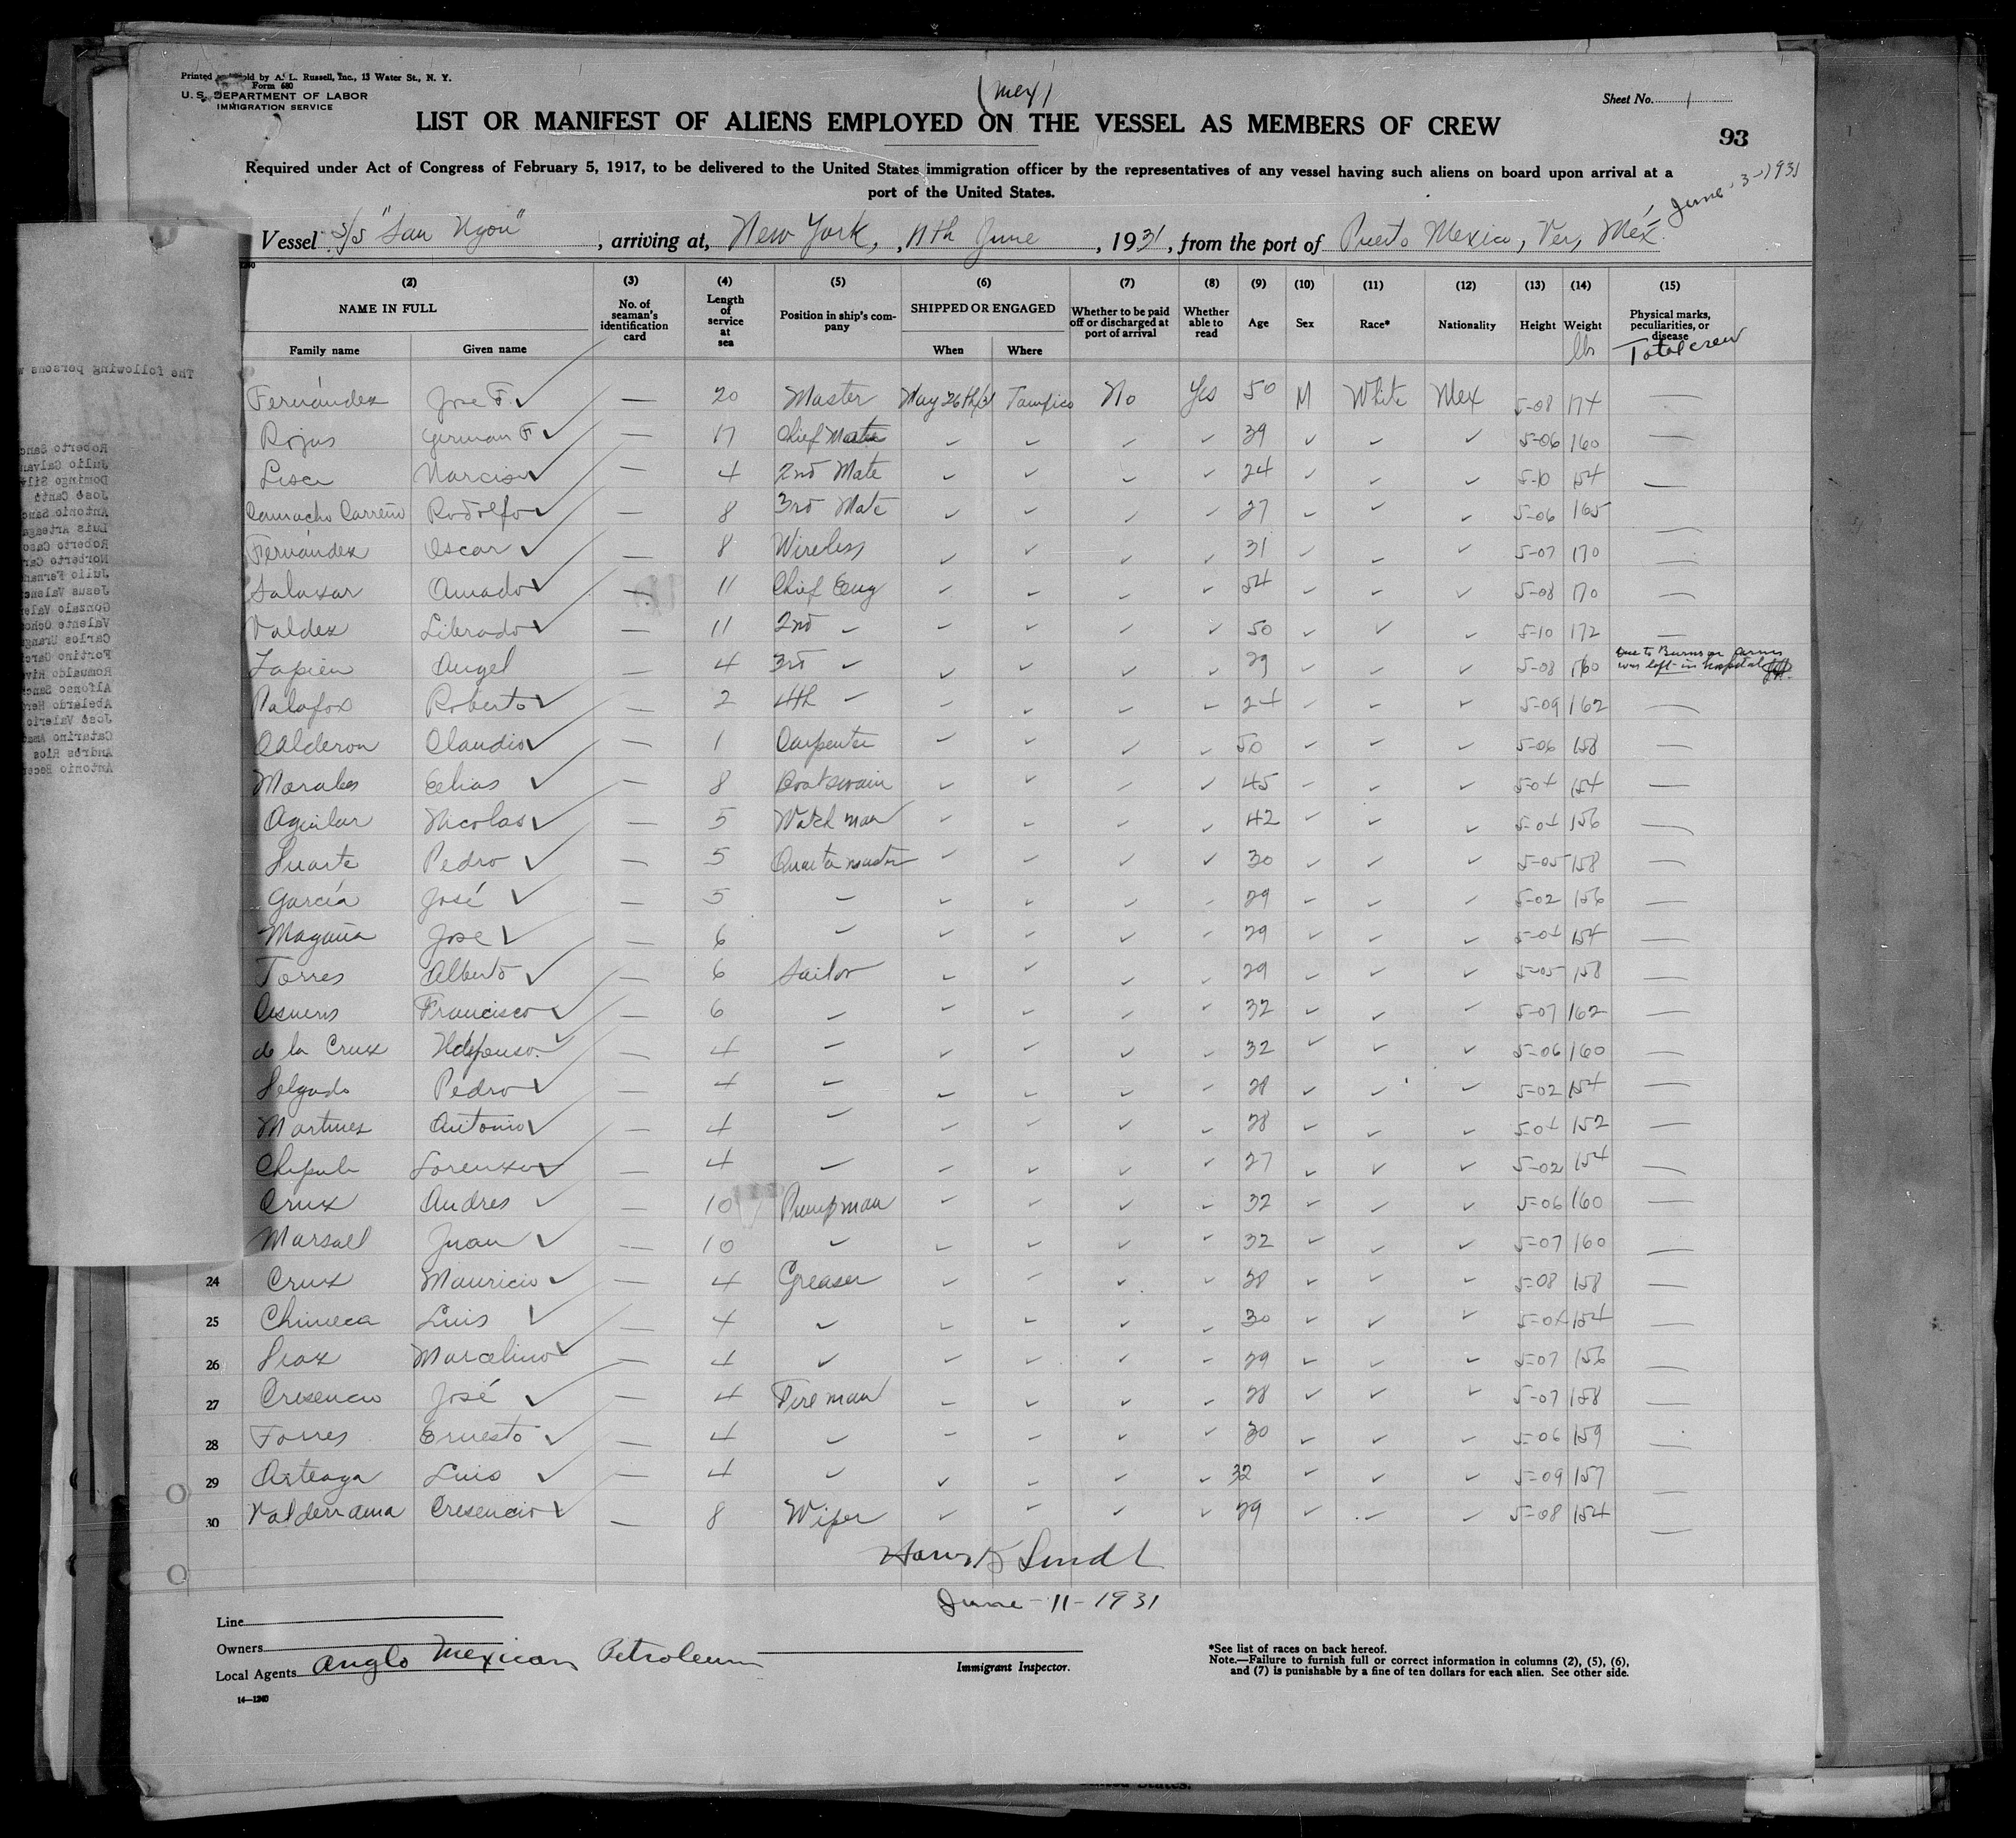 Printed and Sold by A. L. Russell, Inc., 13 Water St., N. Y.
Form 680
U. S. DEPARTMENT OF LABOR
IMMIGRATION SERVICE
(Mex)
Sheet No. 1
LIST OR MANIFEST OF ALIENS EMPLOYED ON THE VESSEL AS MEMBERS OF CREW
93
Required under Act of Congress of February 5, 1917, to be delivered to the United States immigration officer by the representatives of any vessel having such aliens on board upon arrival at a
port of the United States.
June 3-1931
Vessel S/S "San Ugon", arriving at, New York, 11th June, 1931, from the port of Puerto Mexico, Ver, Méx
(2) (3) (4) (5) (6) (7) (8) (9) (10) (11) (12) (13) (14) (15)
NAME IN FULL No. of seaman's identification card Length of service at sea Position in ship's company SHIPPED OR ENGAGED Whether to be paid off or discharged at port of arrival Whether able to read Age Sex Race* Nationality Height Weight Physical marks, peculiarities, or disease
Family name Given name When Where lbs Total crew
Fernández Jose F. ✓ — 20 Master May 26th/31 Tampico No Yes 50 M White Mex 5-08 174 —
Rojas German F ✓ — 17 Chief Mate 39 5-06 160 —
Narciso ✓ — 4 2nd Mate 24 5-10 154 —
Camacho Carreño Rodolfo ✓ — 8 3rd Mate 27 5-06 165 —
Fernandez Oscar ✓ — 8 Wireless 31 5-07 170 —
Salazar Amado ✓ — 11 Chief Eng 54 5-08 170 —
Valdez Librado ✓ — 11 2nd 50 5-10 172 —
Tapien Angel — 4 3rd 29 5-08 160 Due to Burns on arms
was left in hospital
Palafox Roberto ✓ — 2 4th 24 5-09 162 —
Calderon Claudio ✓ — 1 Carpenter 50 5-06 158 —
Morales Elias ✓ — 8 Boatswain 45 5-04 154 —
Aguilar Nicolas ✓ — 5 Watch man 42 5-04 156 —
Duarte Pedro ✓ — 5 Quartermaster 30 5-05 158 —
García José ✓ — 5 29 5-02 156 —
Magaña Jose ✓ — 6 29 5-04 154 —
Torres Alberto ✓ — 6 Sailor 29 5-05 158 —
Cisneros Francisco ✓ — 6 32 5-07 162 —
de la Cruz Ildefonso ✓ — 4 32 5-06 160 —
Delgado Pedro ✓ — 4 28 5-02 154 —
Martinez Antonio ✓ — 4 28 5-04 152 —
Lorenzo ✓ — 4 27 5-02 154 —
Cruz Andres ✓ — 10 Pumpman 32 5-06 160 —
Juan ✓ — 10 32 5-07 160 —
24 Cruz Mauricio ✓ — 4 Greaser 28 5-08 158 —
25 Luis ✓ — 4 30 5-04 154 —
26 Marcelino ✓ — 4 29 5-07 156 —
27 Cresencio José ✓ — 4 Fireman 28 5-07 158 —
28 Torres Ernesto ✓ — 4 30 5-06 159 —
29 Arteaga Luis ✓ — 4 32 5-09 157 —
30 Valderrama Cresencio ✓ — 8 Wiper 29 5-08 154 —
June-11-1931
Line
Owners
Local Agents Anglo Mexican Petroleum
Immigrant Inspector.
*See list of races on back hereof.
Note.—Failure to furnish full or correct information in columns (2), (5), (6),
and (7) is punishable by a fine of ten dollars for each alien. See other side.
14—1240